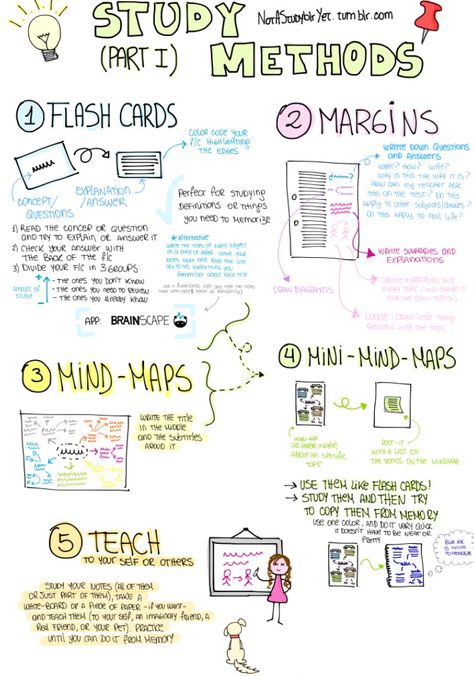 STUDY
(PART I)
METHODS
NotAStudyblrYet.tumblr.com
1 FLASH CARDS
COLOR CODE YOUR
F/C HIGHLIGHTING
THE EDGES
CONCEPT/
QUESTIONS
EXPLANATION
/ANSWER
PERFECT FOR STUDYING
DEFINITIONS OR THINGS
YOU NEED TO MEMORIZE
1) READ THE CONCEP OR QUESTION
AND TRY TO EXPLAIN OR ANSWER IT
2) CHECK YOUR ANSWER WITH
THE BACK OF THE F/C
3) DIVIDE YOUR F/C IN 3 GROUPS
AMOUNT OF
STUDY
- THE ONES YOU DON'T KNOW
- THE ONES YOU NEED TO REVIEW
- THE ONES YOU ALREADY KNOW
ALTERNATIVE
APP: BRAINSCAPE
2 MARGINS
WRITE DOWN QUESTIONS
AND ANSWERS
WHAT? HOW? WHY?
WHY IS THIS THE WAY IT IS?
HOW CAN MY TEACHER ASK
THIS ON THE TEST? DO THIS
APPLY TO OTHER SUBJECTS/ISSUES?
DO THIS APPLY TO REAL LIFE?
WRITE SUMMARIES AND
EXPLANATIONS
CREATE EXAMPLES FOR
EVERY TOPIC (AND CREATE IT
FOR THE SUB-TOPICS)
DOODLE: DRAW LITTLE
RELATED WITH THE TOPIC
DRAW DIAGRAMS
3 MIND-MAPS
WRITE THE TITLE
IN THE MIDDLE
AND THE SUBTITLES
AROUD IT
4 MINI-MIND-MAPS
MIND MAP
ABOUT AN SPECIFIC
TOPIC
POST-IT
WITH A LIST OF
THE TOPICS ON THE MINDMAP
→ USE THEM LIKE FLASH CARDS!
→ STUDY THEM AND THEN TRY
TO COPY THEM FROM MEMORY
USE ONE COLOR, AND DO IT VERY QUICK
IT DOESN'T HAVE TO BE NEAT OR
PRETTY
BLUE INK
IS
TO MEMORIZE
5 TEACH
TO YOUR SELF OR OTHERS
STUDY YOUR NOTES (ALL OF THEM
OR JUST PART OF THEM), TAKE A
WHITE-BOARD OR A PIECE OF PAPER - IF YOU WANT-
AND TEACH THEM (TO YOUR SELF, AN IMAGINARY FRIEND, A
REAL FRIEND, OR YOUR PET). PRACTICE
UNTIL YOU CAN DO IT FROM MEMORY